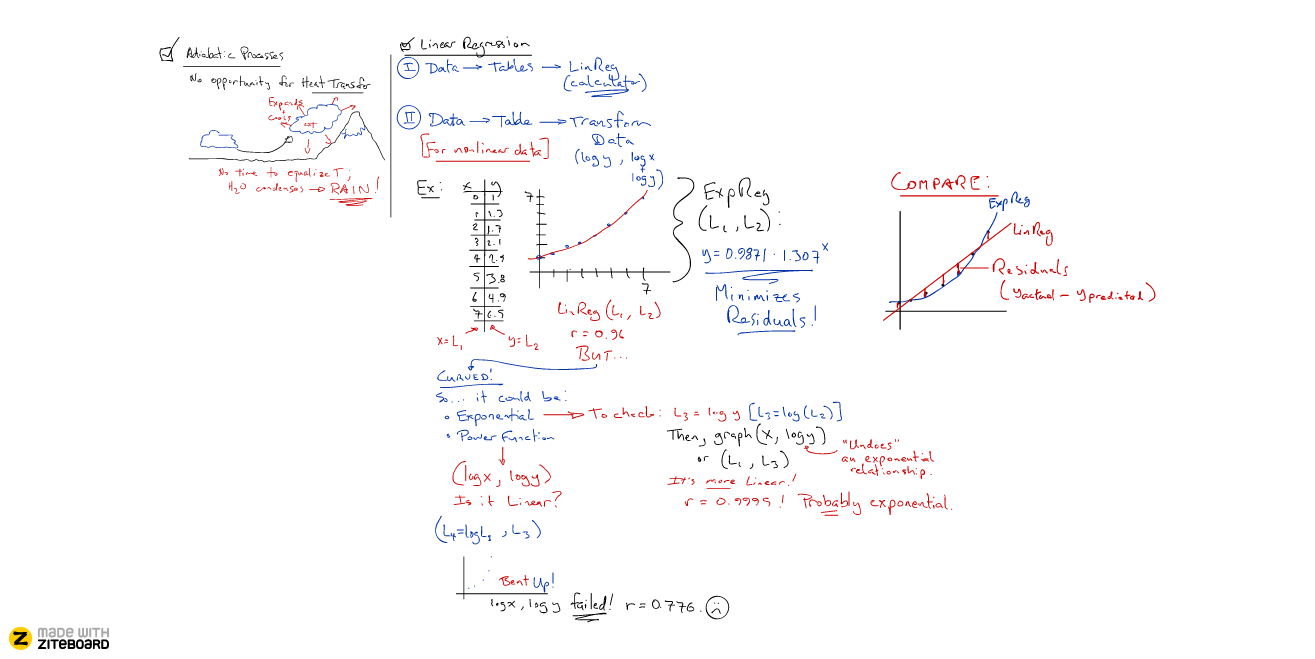 Adiabatic Processes
No opportunity for Heat Transfer
Expands
+
Cools
No time to equalize T;
H₂O condenses → RAIN!
Linear Regression
I Data → Tables → LinReg
(calculator)
II Data → Table → Transform
Data
[For nonlinear data]
(log y, log x
log y)
Ex:
x y
0 1
1 1.3
2 1.7
3 2.1
4 2.9
5 3.8
6 4.9
7 6.5
x=L₁ y=L₂
7
7
ExpReg
(L₁, L₂):
y = 0.9871 · 1.307ˣ
Minimizes
Residuals!
LinReg (L₁, L₂)
r = 0.96
BUT...
COMPARE:
ExpReg
LinReg
Residuals
(yactual - ypredicted)
CURVED!
So... it could be:
• Exponential → To check: L₃ = log y [L₃=log(L₂)]
• Power Function
Then, graph (x, log y)
or (L₁, L₃)
"Undoes"
an exponential
relationship.
It's more Linear!
r = 0.9995! Probably exponential.
(log x, log y)
Is it Linear?
(L₄=logL₁, L₃)
Bent Up!
log x, log y failed! r = 0.776.
MADE WITH
ZITEBOARD